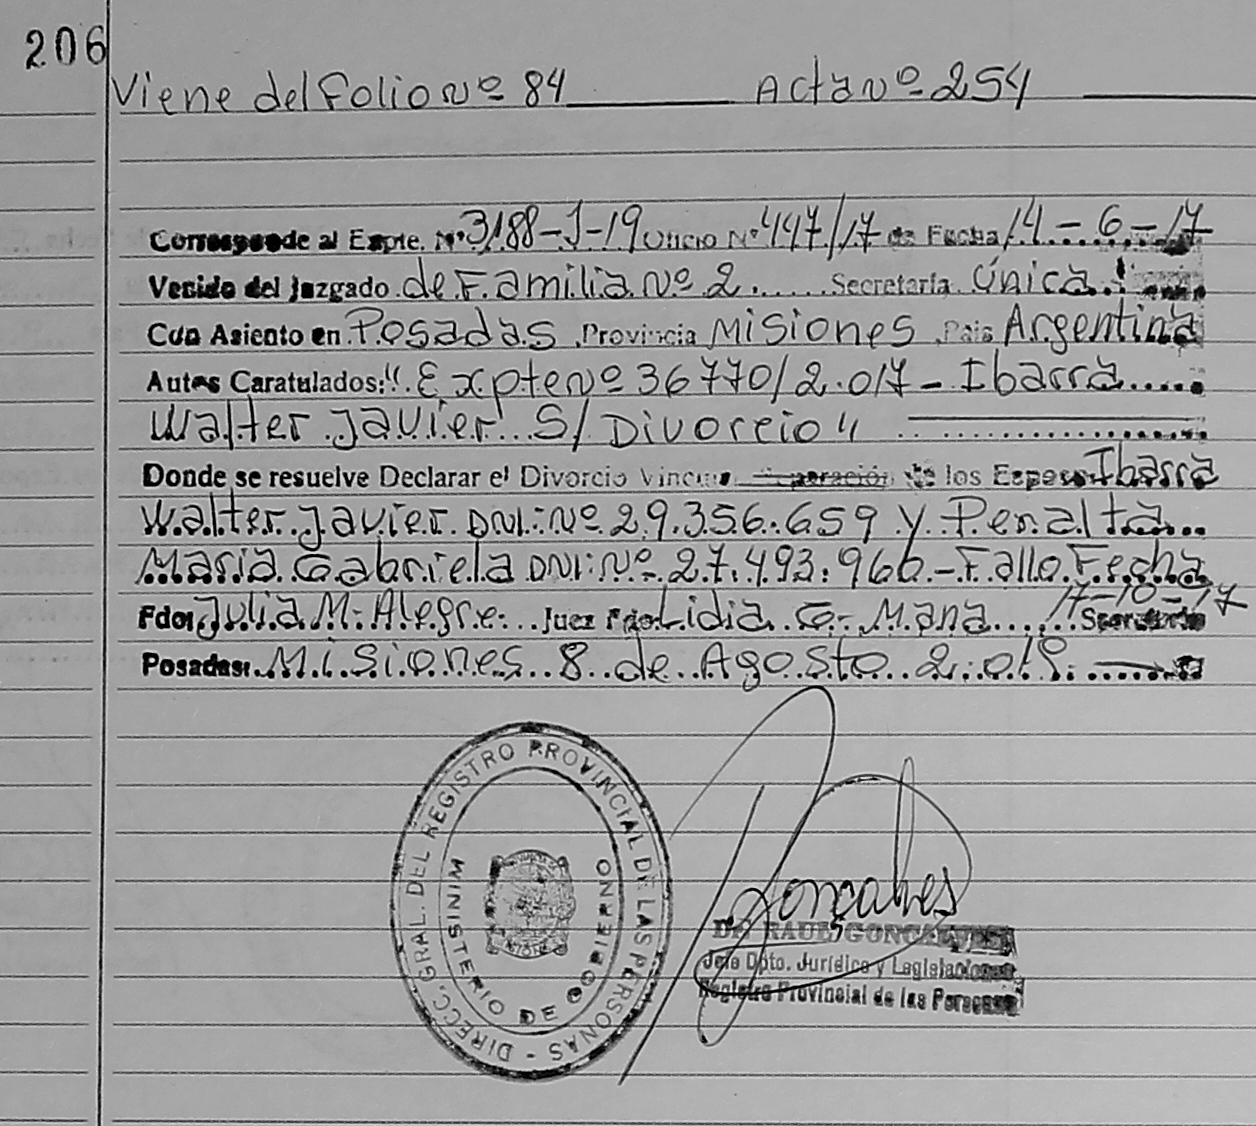 206
Viene del Folio Nº 84 Acta Nº 254
Corresponde al Expte. Nº 3188-J-19 Oficio Nº 447/17 de Fecha 14-6-17
Venido del Juzgado de Familia Nº 2 Secretaría Única
Con Asiento en Posadas Provincia Misiones País Argentina
Autos Caratulados: "Expte Nº 36770/2.017 - Ibarra
Walter Javier S/ Divorcio"
Donde se resuelve Declarar el Divorcio Vincular Separación de los Esposos Ibarra
Walter Javier DNI: Nº 29.356.659 y Peralta
Maria Gabriela DNI: Nº 27.493.966 - Fallo Fecha
17-10-17
Fdo: Julia M. Alegre Juez Fdo: Lidia G. Mana Secretaria
Posadas: Misiones 8 de Agosto 2.019.
DIRECC. GRAL. DEL REGISTRO PROVINCIAL DE LAS PERSONAS -
MINISTERIO DE GOBIERNO
Goncalves
Dr. RAUL GONCALVES
Jefe Dpto. Jurídico y Legislaciones
Registro Provincial de las Personas